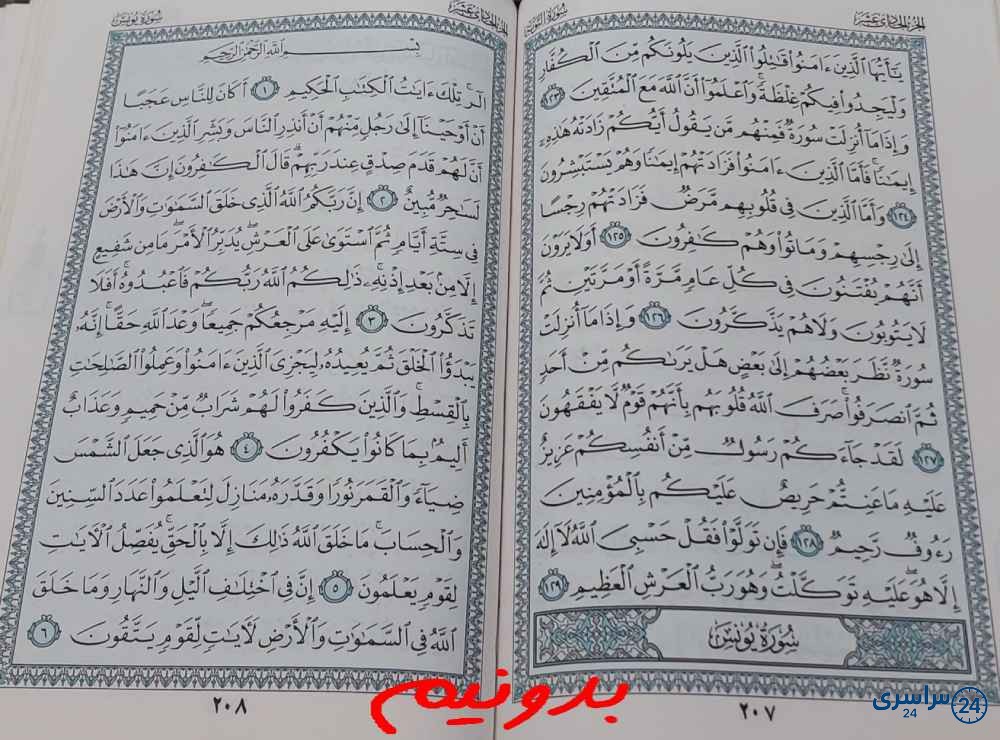 الجزء الحادي عشر
سورة التوبة
يَٰٓأَيُّهَا ٱلَّذِينَ ءَامَنُوا۟ قَٰتِلُوا۟ ٱلَّذِينَ يَلُونَكُم مِّنَ ٱلْكُفَّارِ
وَلْيَجِدُوا۟ فِيكُمْ غِلْظَةً ۚ وَٱعْلَمُوٓا۟ أَنَّ ٱللَّهَ مَعَ ٱلْمُتَّقِينَ ١٢٣
وَإِذَا مَآ أُنزِلَتْ سُورَةٌ فَمِنْهُم مَّن يَقُولُ أَيُّكُمْ زَادَتْهُ هَٰذِهِۦٓ
إِيمَٰنًا ۚ فَأَمَّا ٱلَّذِينَ ءَامَنُوا۟ فَزَادَتْهُمْ إِيمَٰنًا وَهُمْ يَسْتَبْشِرُونَ
١٢٤ وَأَمَّا ٱلَّذِينَ فِى قُلُوبِهِم مَّرَضٌ فَزَادَتْهُمْ رِجْسًا
إِلَىٰ رِجْسِهِمْ وَمَاتُوا۟ وَهُمْ كَٰفِرُونَ ١٢٥ أَوَلَا يَرَوْنَ
أَنَّهُمْ يُفْتَنُونَ فِى كُلِّ عَامٍ مَّرَّةً أَوْ مَرَّتَيْنِ ثُمَّ
لَا يَتُوبُونَ وَلَا هُمْ يَذَّكَّرُونَ ١٢٦ وَإِذَا مَآ أُنزِلَتْ
سُورَةٌ نَّظَرَ بَعْضُهُمْ إِلَىٰ بَعْضٍ هَلْ يَرَىٰكُم مِّنْ أَحَدٍ
ثُمَّ ٱنصَرَفُوا۟ ۚ صَرَفَ ٱللَّهُ قُلُوبَهُم بِأَنَّهُمْ قَوْمٌ لَّا يَفْقَهُونَ
١٢٧ لَقَدْ جَآءَكُمْ رَسُولٌ مِّنْ أَنفُسِكُمْ عَزِيزٌ
عَلَيْهِ مَا عَنِتُّمْ حَرِيصٌ عَلَيْكُم بِٱلْمُؤْمِنِينَ
رَءُوفٌ رَّحِيمٌ ١٢٨ فَإِن تَوَلَّوْا۟ فَقُلْ حَسْبِىَ ٱللَّهُ لَآ إِلَٰهَ
إِلَّا هُوَ ۖ عَلَيْهِ تَوَكَّلْتُ ۖ وَهُوَ رَبُّ ٱلْعَرْشِ ٱلْعَظِيمِ ١٢٩
سُورَةُ يُونُسَ
٢٠٧
الجزء الحادي عشر
سورة يونس
بِسْمِ ٱللَّهِ ٱلرَّحْمَٰنِ ٱلرَّحِيمِ
الٓر ۚ تِلْكَ ءَايَٰتُ ٱلْكِتَٰبِ ٱلْحَكِيمِ ١ أَكَانَ لِلنَّاسِ عَجَبًا
أَنْ أَوْحَيْنَآ إِلَىٰ رَجُلٍ مِّنْهُمْ أَنْ أَنذِرِ ٱلنَّاسَ وَبَشِّرِ ٱلَّذِينَ ءَامَنُوٓا۟
أَنَّ لَهُمْ قَدَمَ صِدْقٍ عِندَ رَبِّهِمْ ۗ قَالَ ٱلْكَٰفِرُونَ إِنَّ هَٰذَا
لَسَٰحِرٌ مُّبِينٌ ٢ إِنَّ رَبَّكُمُ ٱللَّهُ ٱلَّذِى خَلَقَ ٱلسَّمَٰوَٰتِ وَٱلْأَرْضَ
فِى سِتَّةِ أَيَّامٍ ثُمَّ ٱسْتَوَىٰ عَلَى ٱلْعَرْشِ ۖ يُدَبِّرُ ٱلْأَمْرَ ۖ مَا مِن شَفِيعٍ
إِلَّا مِنۢ بَعْدِ إِذْنِهِۦ ۚ ذَٰلِكُمُ ٱللَّهُ رَبُّكُمْ فَٱعْبُدُوهُ ۚ أَفَلَا
تَذَكَّرُونَ ٣ إِلَيْهِ مَرْجِعُكُمْ جَمِيعًا ۖ وَعْدَ ٱللَّهِ حَقًّا ۚ إِنَّهُۥ
يَبْدَؤُا۟ ٱلْخَلْقَ ثُمَّ يُعِيدُهُۥ لِيَجْزِىَ ٱلَّذِينَ ءَامَنُوا۟ وَعَمِلُوا۟ ٱلصَّٰلِحَٰتِ
بِٱلْقِسْطِ ۚ وَٱلَّذِينَ كَفَرُوا۟ لَهُمْ شَرَابٌ مِّنْ حَمِيمٍ وَعَذَابٌ
أَلِيمٌۢ بِمَا كَانُوا۟ يَكْفُرُونَ ٤ هُوَ ٱلَّذِى جَعَلَ ٱلشَّمْسَ
ضِيَآءً وَٱلْقَمَرَ نُورًا وَقَدَّرَهُۥ مَنَازِلَ لِتَعْلَمُوا۟ عَدَدَ ٱلسِّنِينَ
وَٱلْحِسَابَ ۚ مَا خَلَقَ ٱللَّهُ ذَٰلِكَ إِلَّا بِٱلْحَقِّ ۚ يُفَصِّلُ ٱلْءَايَٰتِ
لِقَوْمٍ يَعْلَمُونَ ٥ إِنَّ فِى ٱخْتِلَٰفِ ٱلَّيْلِ وَٱلنَّهَارِ وَمَا خَلَقَ
ٱللَّهُ فِى ٱلسَّمَٰوَٰتِ وَٱلْأَرْضِ لَءَايَٰتٍ لِّقَوْمٍ يَتَّقُونَ ٦
٢٠٨
بدونیم
سراسری 24
24